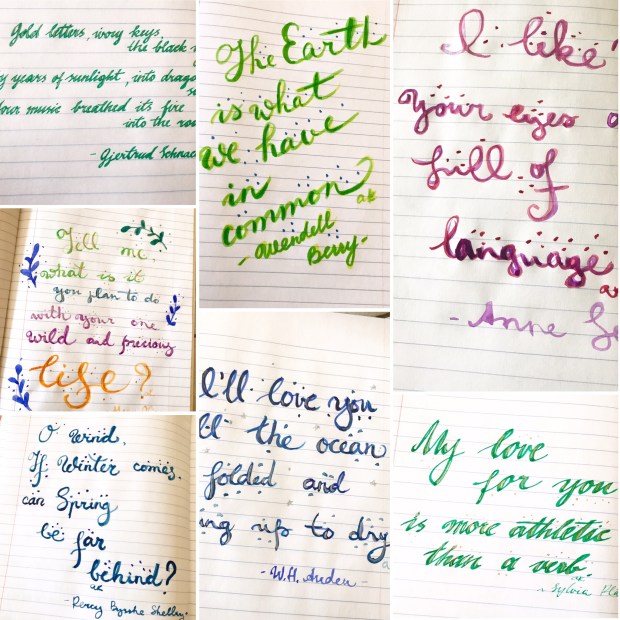 Gold letters, ivory keys,
the black
y years of sunlight, into drago
our music breathed it's fire
into the
- Gjertrud Schnac
The Earth
is what
we have
in
common
ak
- Wendell
Berry.
I like
your eyes
full of
language
- Anne Se
Tell me
what is it
you plan to do
with your one
wild and precious
life?
I'll love you
ll the ocean
folded and
ng up to dry
- W.H. Auden -
O Wind,
If Winter comes,
can Spring
be far
behind?
ak
- Percy Bysshe Shelley.
My love
for you
is more athletic
than a verb.
ak
- Sylvia Pla